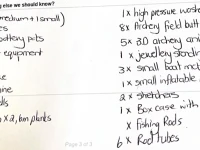 g else we should know?
medium + 1 small)
es
pots
equipment
ke
ine
ls
x 2,4m planks
1 x high pressure wash
8 x Archery field butt
5 x 3D archery ani
1 x jewellery standin
3 x small boat mot
1 x small inflatable
2 x stretchers
1 x Box case with
x fishing Rods
6 x Rod tubes
Page 2 of 2